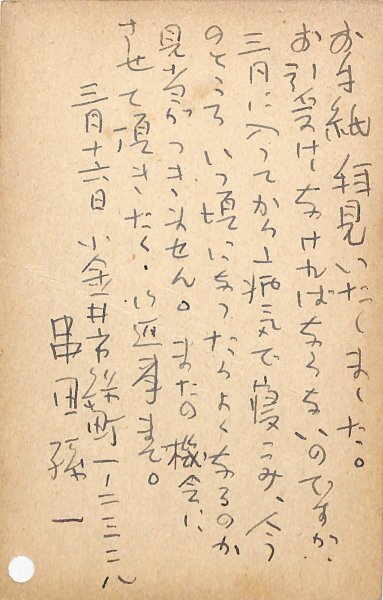 お手紙拝見いたしました。
お引受けしなければならないのですが、
三月に入ってから病気で寝こみ、今
のところいつ頃になったらよくなるのか
見当がつきません。またの機会に
させて頂きたく、御返事まで。
三月十六日 小金井市緑町一ー二三ー二八
串田孫一